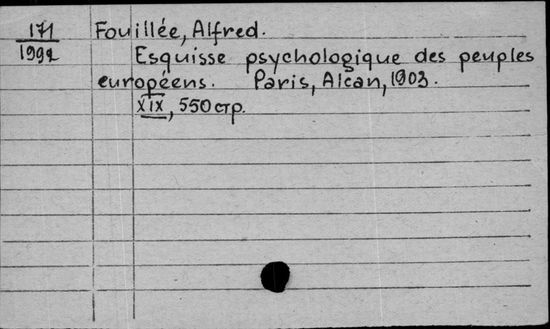 171 Fouillée, Alfred.
1992 Esquisse psychologique des peuples
européens. Paris, Alcan, 1903.
XIX, 550 стр.